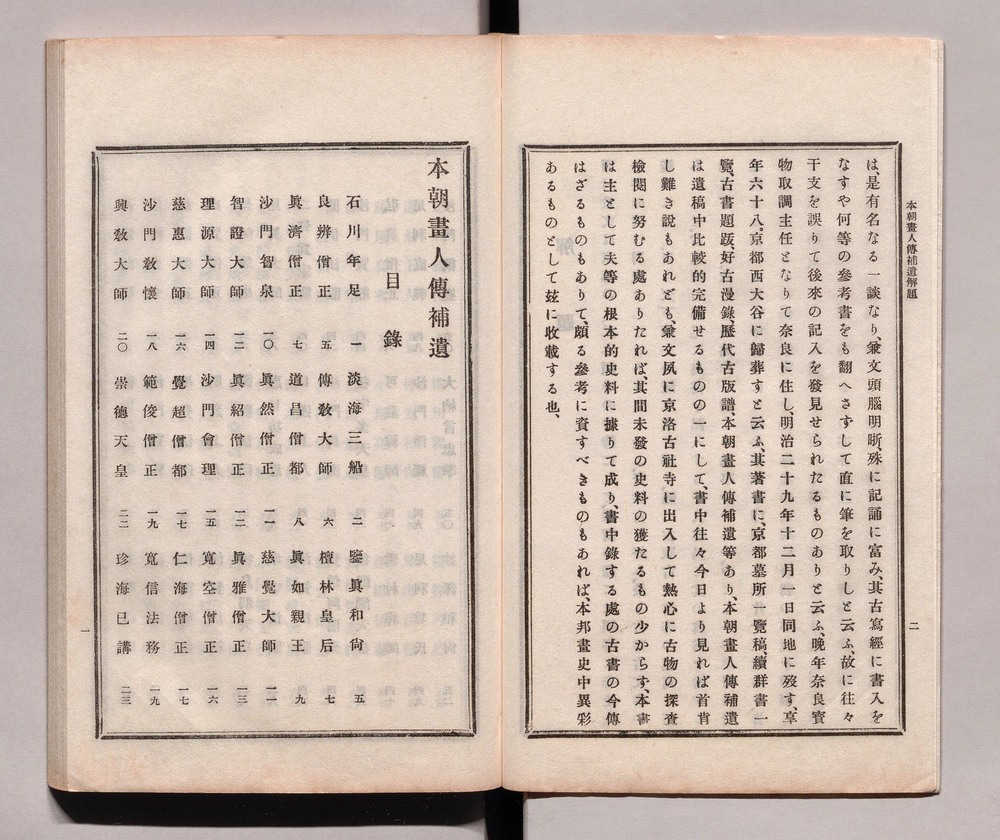 本朝畫人傳補遺解題
二
は、是有名なる一談なり、兼文頭腦明晰、殊に記誦に富み、其古寫經に書入を
なすや何等の參考書をも翻へさずして直に筆を取りしと云ふ、故に往々
干支を誤りて後來の記入を發見せられたるものありと云ふ、晩年奈良寶
物取調主任となりて奈良に住し、明治二十九年十二月一日同地に歿す、享
年六十八。京都西大谷に歸葬すと云ふ、其著書に、京都墓所一覽稿、續群書一
覽、古書題跋、好古漫錄、歷代古版譜、本朝畫人傳補遺等あり、本朝畫人傳補遺
は遺稿中比較的完備せるものの一にして、書中往々今日より見れば首肯
し難き說もあれども、兼文夙に京洛古社寺に出入して熱心に古物の探査
檢閱に努むる處ありたれば、其間未發の史料の獲たるもの少からず、本書
は主として夫等の根本的史料に據りて成り、書中錄する處の古書の今傳
はざるものもありて、頗る參考に資すべきものもあれば、本邦畫史中異彩
あるものとして玆に收載する也、
本朝畫人傳補遺
目錄
石川年足 一 淡海三船 二 鑒眞和尙 五
良辨僧正 五 傳敎大師 六 檀林皇后 七
眞濟僧正 七 道昌僧都 八 眞如親王 九
沙門智泉 一〇 眞然僧正 一一 慈覺大師 一一
智證大師 一二 眞紹僧正 一二 眞雅僧正 一三
理源大師 一四 沙門會理 一五 寬空僧正 一六
慈惠大師 一六 覺超僧都 一七 仁海僧正 一七
沙門敎懷 一八 範俊僧正 一九 寬信法務 一九
興敎大師 二〇 崇德天皇 二二 珍海已講 二三
一